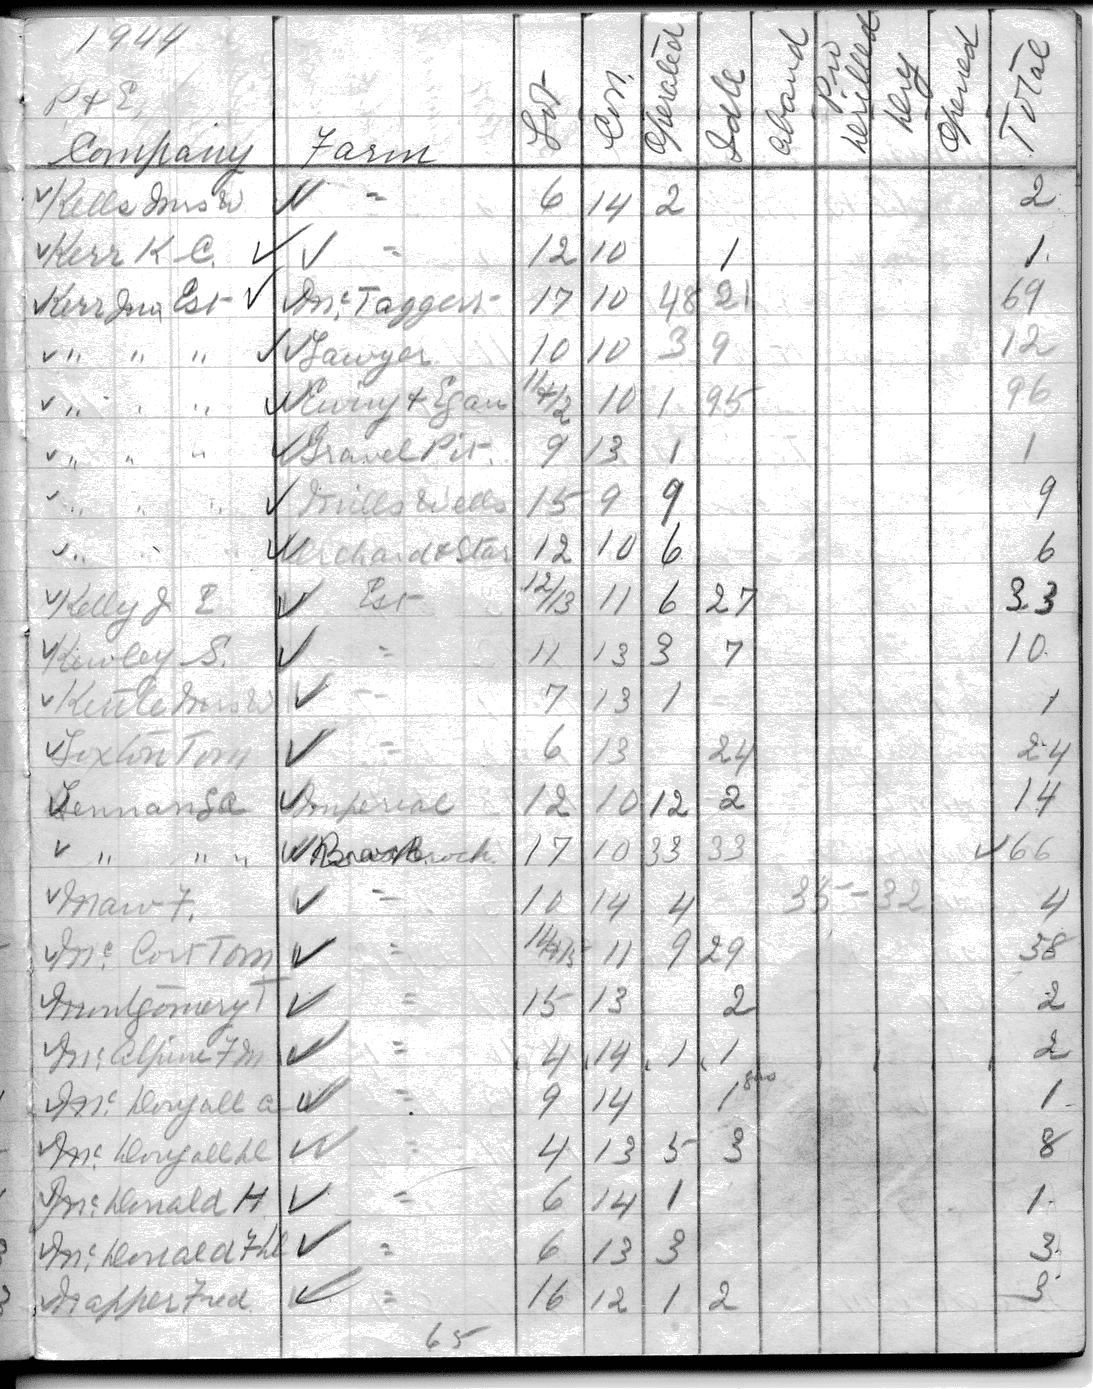 1944
P + E,
Company Farm Lot Con. Operated Idle Aband Pro Drilled Dry Opened Total
✓ Kells Mrs W ✓ " 6 14 2 2
✓ Kerr K C. ✓ ✓ " 12 10 1 1.
Kerr Jno Est ✓ ✓ Mc Taggert 17 10 48 21 69
✓ " " " ✓ ✓ Sawyer 10 10 3 9 12
✓ " " " ✓ Ewing & Egan 11+1/2 10 1 95 96
✓ " " " ✓ Gravel Pit. 9 13 1 1
✓ " " " ✓ Mills Wells 15 9 9 9
✓ " " ✓ Orchard & Star 12 10 6 6
✓ Kelly J E ✓ Est 12/13 11 6 27 33
✓ Kewley S. ✓ " 11 13 3 7 10.
✓ Kettle Mrs W ✓ 7 13 1 1
✓ Sexton Tom ✓ " 6 13 24 24
✓ ✓ Imperial 12 10 12 2 14
✓ " " " ✓ 17 10 33 33 ✓ 66
✓ Maw F. ✓ " 10 14 4 33 - 32 4
✓ Mc Cort Tom ✓ " 14+15 11 9 29 38
✓ Montgomery T ✓ " 15 13 2 2
✓ Mc Alpine F M ✓ " 4 14 1 1 2
✓ Mc Dougall A ✓ " 9 14 1 1.
✓ Mc Dougall D ✓ " 4 13 5 3 8
✓ Mc Donald H ✓ " 6 14 1 1.
✓ Mc Donald F D ✓ " 6 13 3 3.
✓ Napper Fred ✓ " 16 12 1 2 3
65